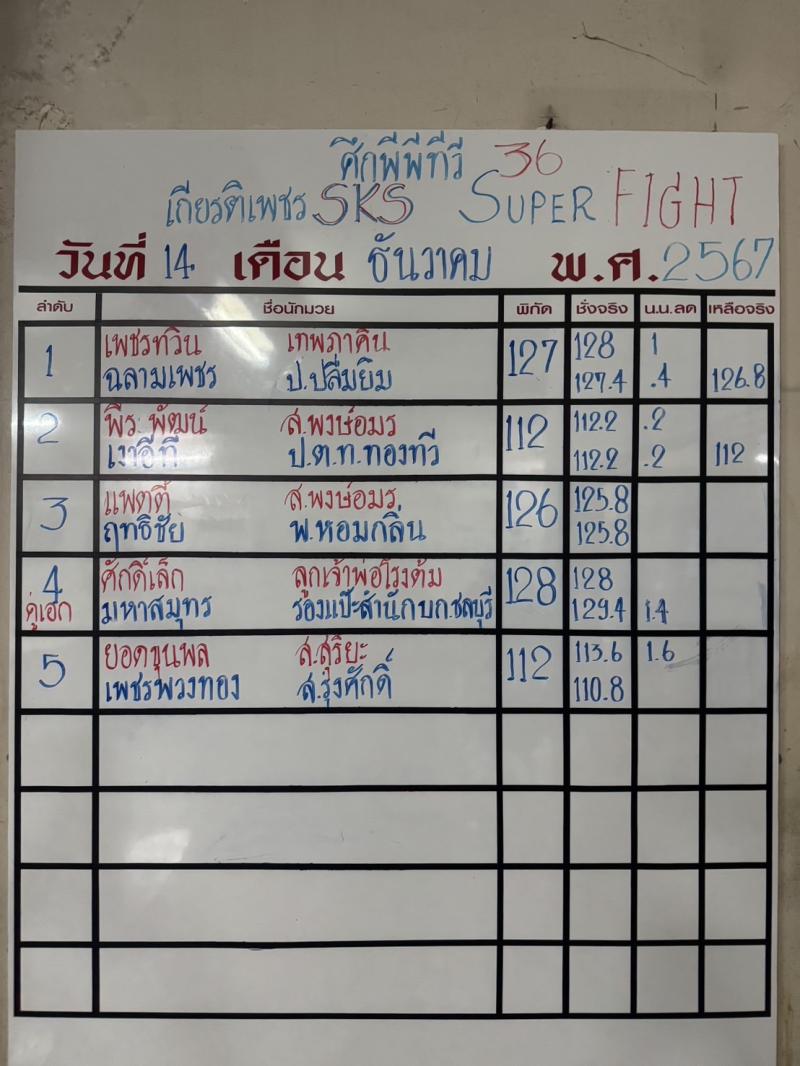 ศึกพีพีทีวี 36
เกียรติเพชร SKS SUPER FIGHT
วันที่ 14 เดือน ธันวาคม พ.ศ. 2567
ลำดับ ชื่อนักมวย พิกัด ชั่งจริง น.น.ลด เหลือจริง
1 เพชรทวิน เทพภาคิน 127 128 1
ฉลามเพชร ป.ปลื้มยิม 127.4 .4 126.8
2 พีระพัฒน์ ส.พงษ์อมร 112 112.2 .2
เงาอีที ป.ต.ท.ทองทวี 112.2 .2 112
3 แพตตี้ ส.พงษ์อมร 126 125.8
ฤทธิชัย พ.หอมกลิ่น 125.8
4 ศักดิ์เล็ก ลูกเจ้าพ่อโรงต้ม 128 128
คู่เอก มหาสมุทร รองแป๊ะสำนักบกชลบุรี 129.4 1.4
5 ยอดขุนพล ส.สุริยะ 112 113.6 1.6
เพชรพวงทอง ส.รุ่งศักดิ์ 110.8